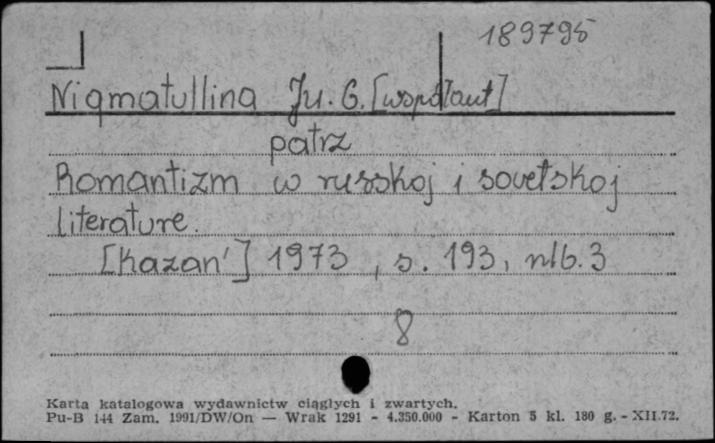 189795
Nigmatullina Ju. G. [współaut]
patrz
Romantizm w russkoj i sovetskoj
literature.
[Kazan'] 1973, s. 193, nlb. 3
8
Karta katalogowa wydawnictw ciągłych i zwartych.
Pu-B 144 Zam. 1991/DW/On — Wrak 1291 - 4.350.000 - Karton 5 kl. 180 g. - XII.72.